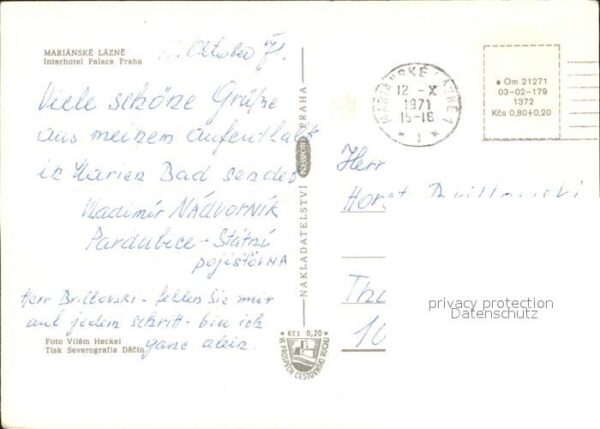 MARIÁNSKÉ LÁZNĚ
Interhotel Palace Praha
Oktober 71.
Viele schöne Grüße
aus meinem Aufenthalt
in Marien Bad sendet
Vladimír NÁDVORNÍK
Pardubice - Státní
pojišťovna
Herr Brillovski - fehlen Sie mir
auf jedem schritt - bin ich
ganz alein.
Foto Vilém Heckel
Tisk Severografia Děčín
NAKLADATELSTVÍ PRAHA
Kčs 0,20
VE PROSPĚCH CESTOVNÍHO RUCHU
MARIÁNSKÉ LÁZNĚ 1
12 -X
1971
15-16
* 1 *
• Om 21271
03-02-179
1372
Kčs 0,80+0,20
Herr
Horst
privacy protection
Datenschutz